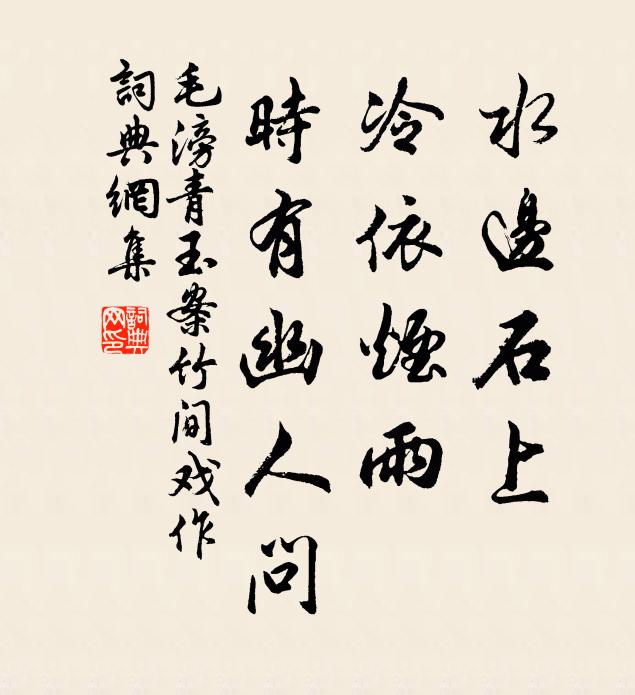 水邊石上
冷依煙雨
時有幽人問
毛滂青玉案竹間戏作
詞典網集
詞典网印